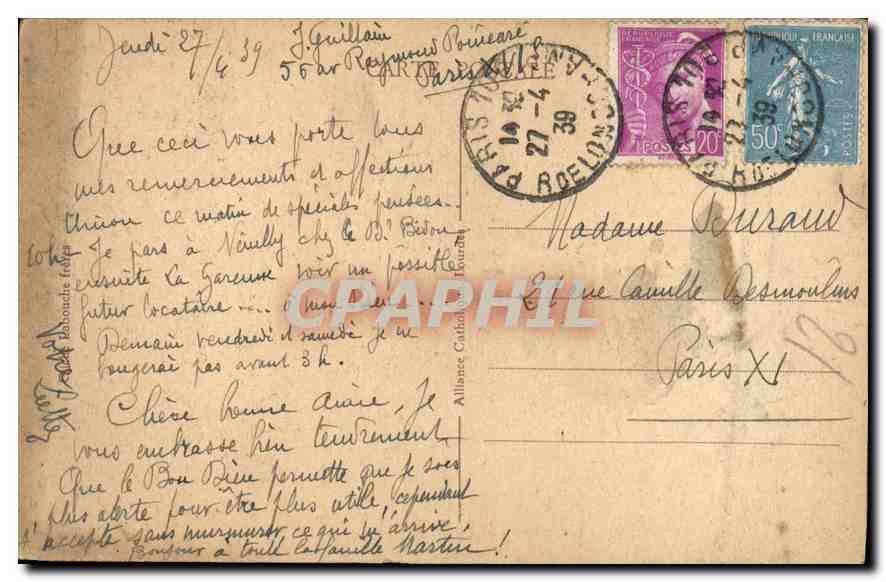 Jeudi 27/4 39 J. Guillain
56 av Raymond Poincaré
Paris XVI
CARTE POSTALE
Que ceci vous porte tous
mes remerciements et affections
ce matin de spéciales pensées..
10h - Je pars à Neuilly chez le Bidou
ensuite La Garenne voir un possible
futur locataire ....
Demain vendredi et samedi je ne
bougerai pas avant 3h.
Chère bonne amie, Je
vous embrasse bien tendrement
Que le Bon Dieu permette que je sois
plus alerte pour être plus utile, cependant
j'accepte sans murmurer ce qui m'arrive.
Bonjour à toute la famille Martin!
Labouche frères
Alliance Catholique Lourdes
PARIS 106
14 30
27-4
39
R DE LONGCHAMP
REPUBLIQUE FRANÇAISE
POSTES 20c
PARIS 106
27-4
39
R DE LONGCHAMP
REPUBLIQUE FRANÇAISE
50c
POSTES
Madame Durand
21 rue Camille Desmoulins
Paris XI
CPAPHIL